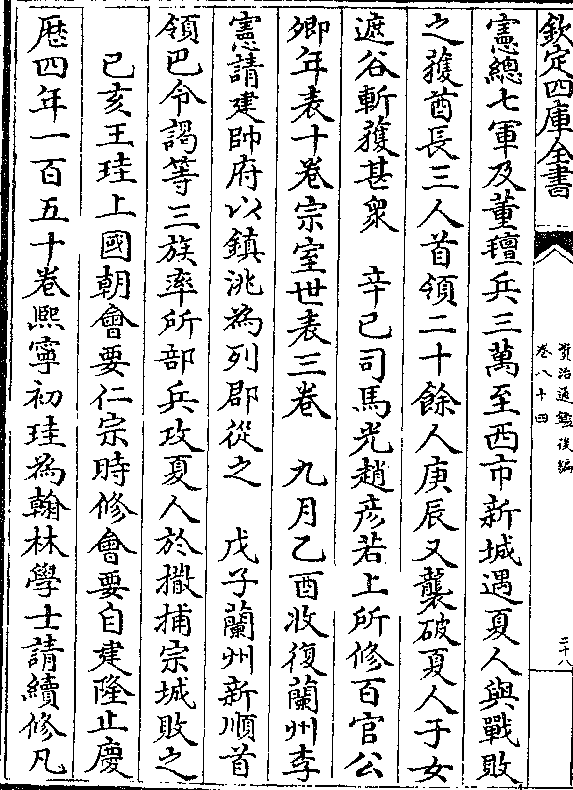 欽定四庫全書
資治通鑑後編
卷八十四
二十八
憲總七軍及董氊兵三萬至西市新城遇夏人與戰敗
之獲酋長三人首領二十餘人庚辰又襲破夏人于女
遮谷斬獲甚衆　辛巳司馬光趙彥若上所修百官公
卿年表十卷宗室世表三卷　九月乙酉收復蘭州李
憲請建帥府以鎮洮為列郡從之　戊子蘭州新順首
領巴令謁等三族率所部兵攻夏人於撒捕宗城敗之
己亥王珪上國朝會要仁宗時修會要自建隆止慶
厯四年一百五十卷熙寧初珪為翰林學士請續修凡